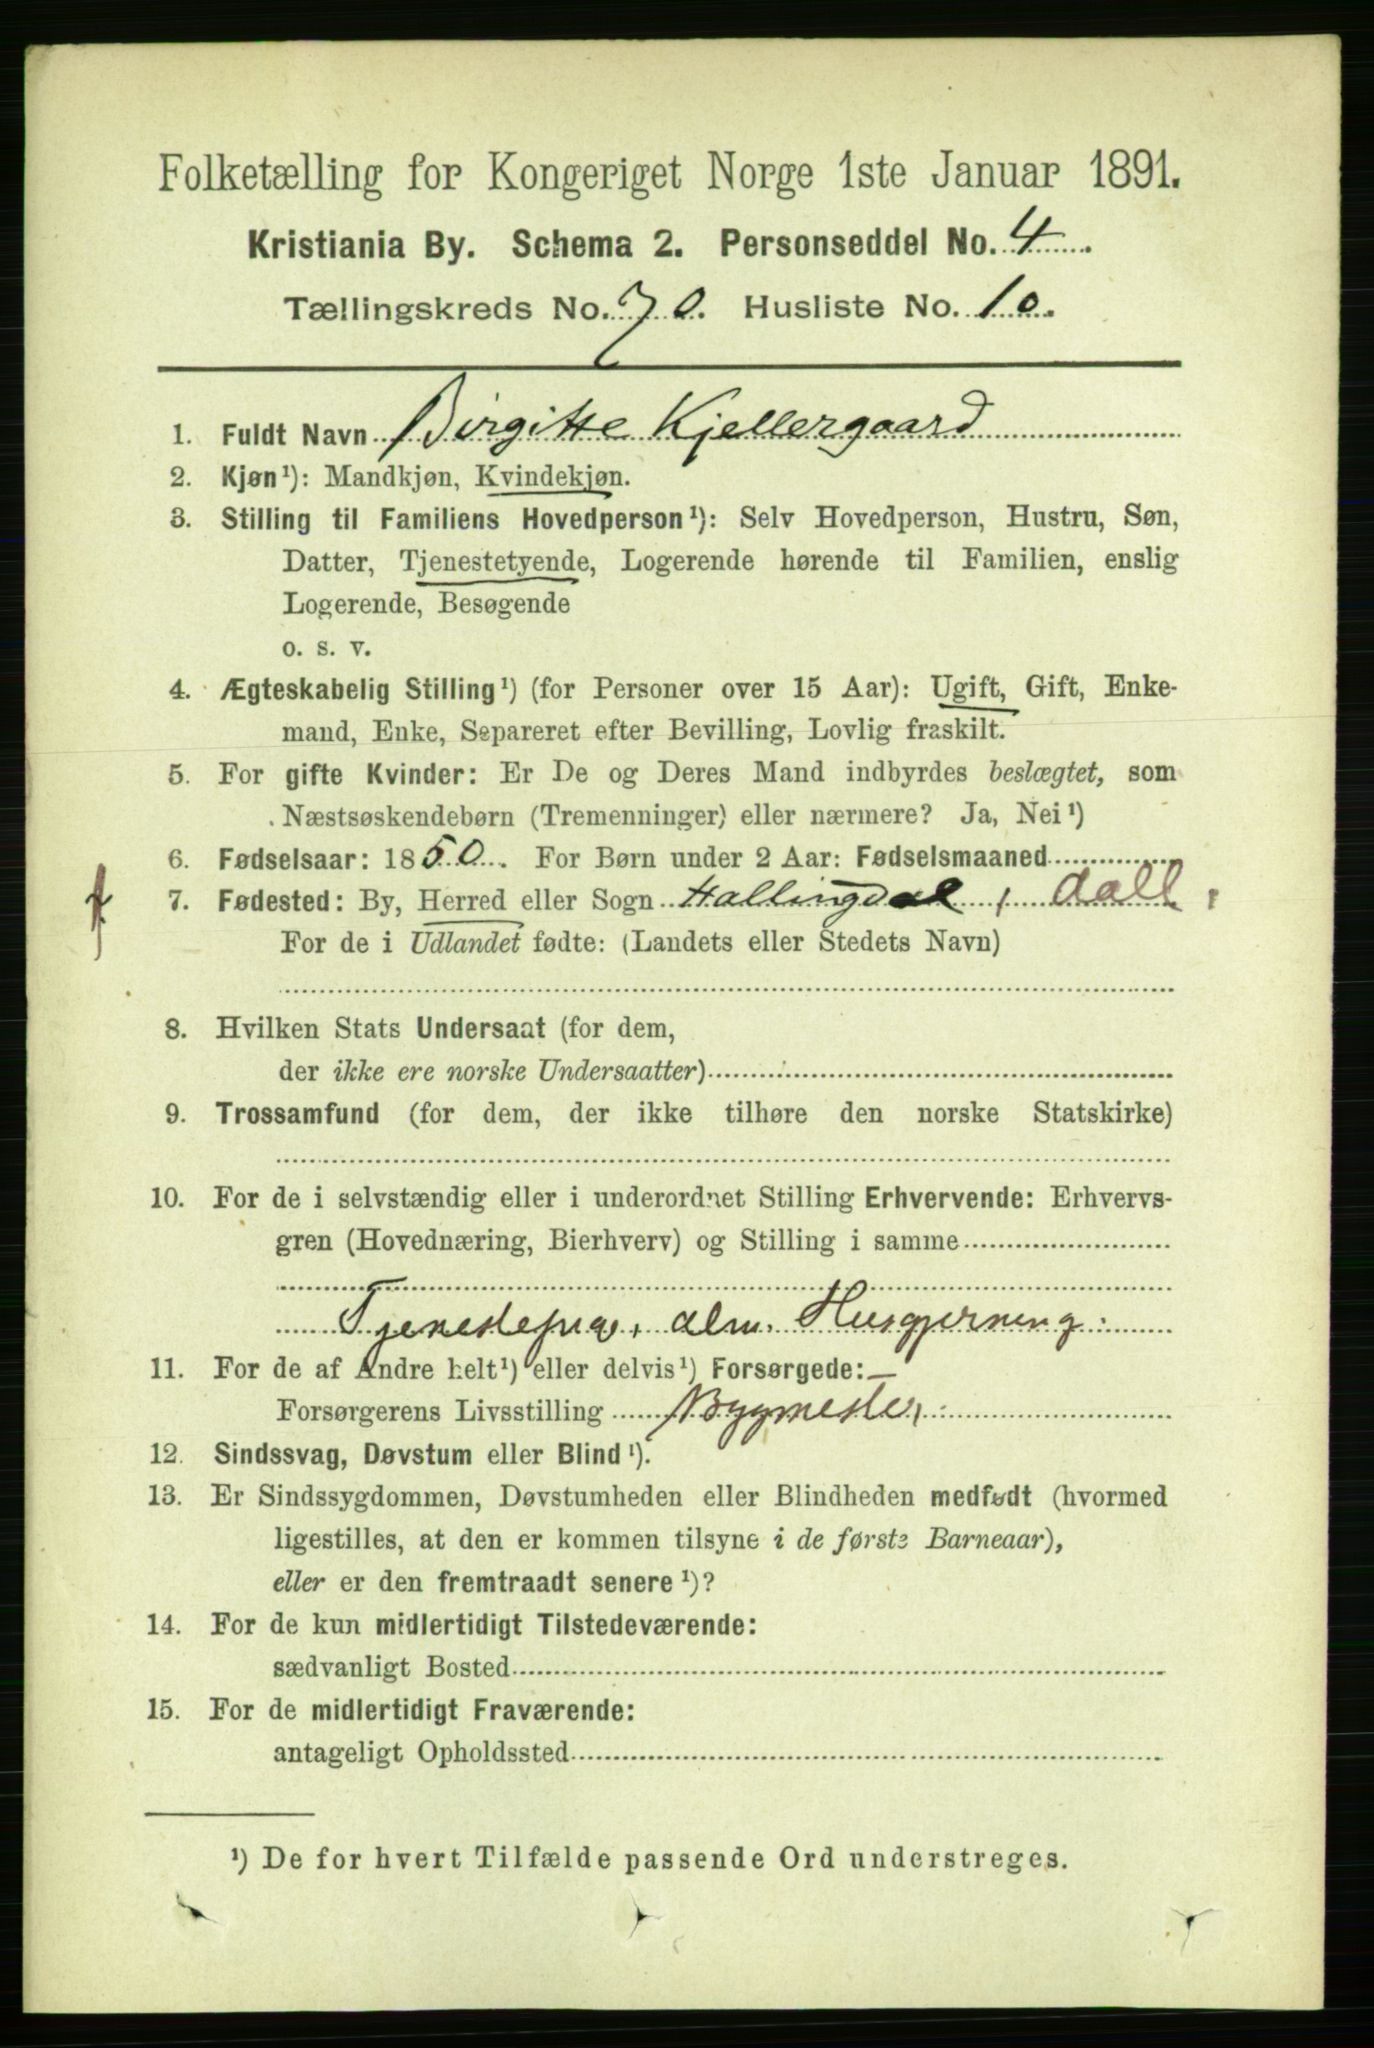 Folketælling for Kongeriget Norge 1ste Januar 1891.
Kristiania By. Schema 2. Personseddel No. 4
Tællingskreds No. 70. Husliste No. 10.
1. Fuldt Navn Birgitte Kjellergaard
2. Kjøn¹): Mandkjøn, Kvindekjøn.
3. Stilling til Familiens Hovedperson¹): Selv Hovedperson, Hustru, Søn,
Datter, Tjenestetyende, Logerende hørende til Familien, enslig
Logerende, Besøgende
o. s. v.
4. Ægteskabelig Stilling¹) (for Personer over 15 Aar): Ugift, Gift, Enke-
mand, Enke, Separeret efter Bevilling, Lovlig fraskilt.
5. For gifte Kvinder: Er De og Deres Mand indbyrdes beslægtet, som
Næstsøskendebørn (Tremenninger) eller nærmere? Ja, Nei¹)
6. Fødselsaar: 1850. For Børn under 2 Aar: Fødselsmaaned
7. Fødested: By, Herred eller Sogn Hallingdal, dall
For de i Udlandet fødte: (Landets eller Stedets Navn)
8. Hvilken Stats Undersaat (for dem,
der ikke ere norske Undersaatter)
9. Trossamfund (for dem, der ikke tilhøre den norske Statskirke)
10. For de i selvstændig eller i underordnet Stilling Erhvervende: Erhvervs-
gren (Hovednæring, Bierhverv) og Stilling i samme
Tjenestepige, alm. Husgjerning
11. For de af Andre helt¹) eller delvis¹) Forsørgede: —
Forsørgerens Livsstilling Bygmester
12. Sindssvag, Døvstum eller Blind¹).
13. Er Sindssygdommen, Døvstumheden eller Blindheden medfødt (hvormed
ligestilles, at den er kommen tilsyne i de første Barneaar),
eller er den fremtraadt senere¹)?
14. For de kun midlertidigt Tilstedeværende:
sædvanligt Bosted
15. For de midlertidigt Fraværende:
antageligt Opholdssted
¹) De for hvert Tilfælde passende Ord understreges.